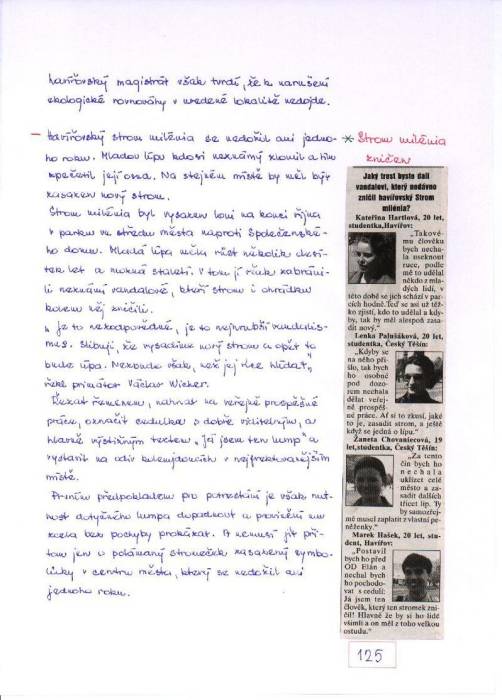 havířovský magistrát však tvrdí, že k narušení
ekologické rovnováhy v uvedené lokalitě nedojde.
– Havířovský strom milénia se nedožil ani jedno-
ho roku. Mladou lípu kdosi neznámý zlomil a tím
zpečetil její osud. Na stejném místě by měl být
zasazen nový strom.
Strom milénia byl vysazen loni na konci října
v parku ve středu města naproti Společenské-
ho domu. Mladá lípa měla růst několik desíti-
ter let a možná staletí. V tom jí však zabráni-
li neznámí vandalové, kteří strom i ohrádku
kolem něj zničili.
„ Je to nekodpovědné, je to nejhrubší vandalis-
mus. Slibuji, že vysadíme nový strom a opět to
bude lípa. Nezbude však, než jej více hlídat,"
řekl primátor Václav Wicher.
Řezat řemenem, nahnat na veřejně prospěšné
práce, označit cedulkou s dobře viditelným, a
hlavně výstižným textem „Já jsem ten lump" a
vystavit na odiv kolemjdoucích v nejfrekventovanějším
místě.
Prvním předpokladem pro potrestání je však nut-
nost dotyčného lumpa dopadnout a provinění mu
zcela bez pochyby prokázat. A nemusí jít při-
tom jen o polámaný stromeček zasazený symbo-
licky v centru města, který se nedožil ani
jednoho roku.
* Strom milénia
zničen
Jaký trest byste dali
vandalovi, který nedávno
zničil havířovský Strom
milénia?
Kateřina Hartlová, 20 let,
studentka, Havířov:
„Takové-
mu člověku
bych necha-
la useknout
ruce, podle
mě to udělal
někdo z mla-
dých lidí, v
této době se jich schází v par-
cích hodně. Teď se asi už těž-
ko zjistí, kdo to udělal a kdy-
by, tak by měl alespoň zasa-
dit nový."
Lenka Palušáková, 20 let,
studentka, Český Těšín:
„Kdyby
se na něho při-
šlo, tak bych
ho osobně
pod dozo-
rem nechala
dělat veřej-
ně prospěš-
né práce. Ať si to zkusí, jaké
to je, zasadit strom, a ještě
když se jedná o lípu."
Žaneta Chovaniecová, 19
let, studentka, Český Těšín:
„Za tento
čin bych ho
nechala
uklízet celé
město a za-
sadit dalších
třicet lip. Ty
by samozřej-
mě musel zaplatit z vlastní pe-
něženky."
Marek Hašek, 20 let, stu-
dent, Havířov:
„Postavil
bych ho před
OD Elán a
nechal bych
ho pochodo-
vat s cedulí:
Já jsem ten
člověk, který ten stromek zni-
čil! Hlavně že by si ho lidé
všimli a on měl z toho velkou
ostudu."
125